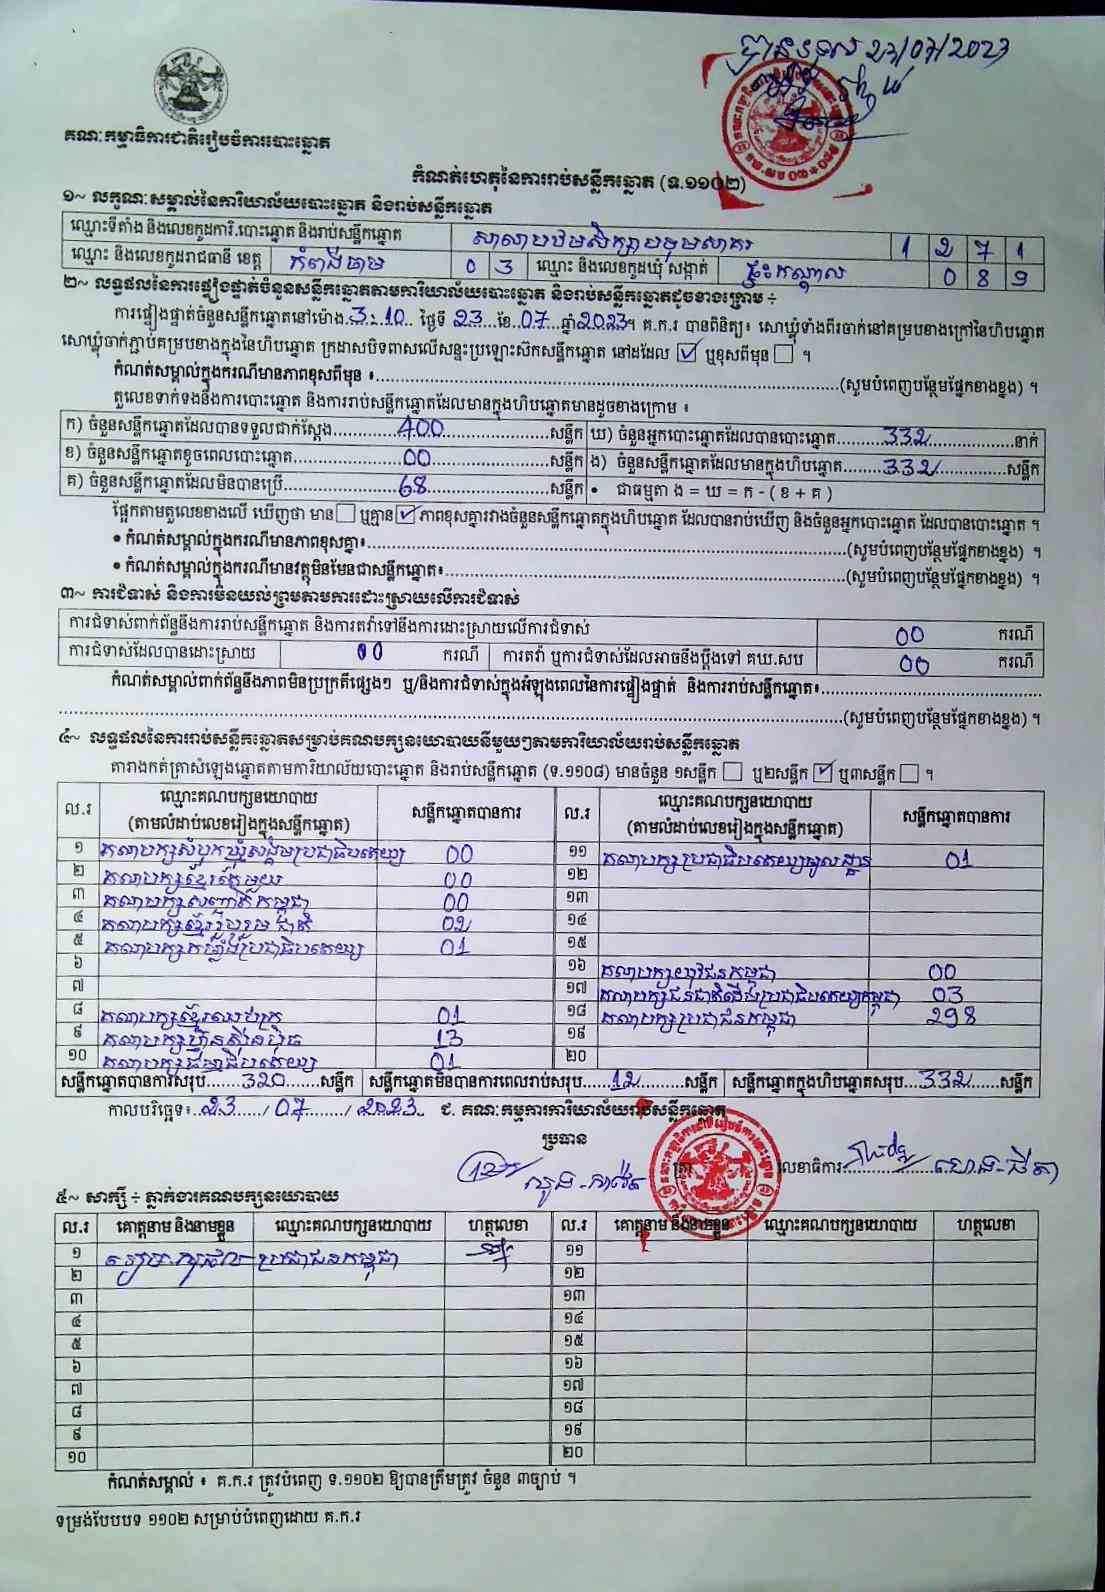 បានទទួល 23/07/2023
គណៈកម្មាធិការជាតិរៀបចំការបោះឆ្នោត
កំណត់ហេតុនៃការរាប់សន្លឹកឆ្នោត (ទ.១១០២)
១~ លក្ខណៈសម្គាល់នៃការិយាល័យបោះឆ្នោត និងរាប់សន្លឹកឆ្នោត
ឈ្មោះទីតាំង និងលេខកូដការិ.បោះឆ្នោត និងរាប់សន្លឹកឆ្នោត សាលាបឋមសិក្សាបទុមសាគរ 1 2 7 1
ឈ្មោះ និងលេខកូដរាជធានី ខេត្ត កំពង់ចាម 0 3 ឈ្មោះ និងលេខកូដឃុំ សង្កាត់ ព្រះកណ្ដាល 0 8 9
២~ លទ្ធផលនៃការផ្ទៀងផ្ទាត់ចំនួនសន្លឹកឆ្នោតតាមការិយាល័យបោះឆ្នោត និងរាប់សន្លឹកឆ្នោតដូចខាងក្រោម ÷
ការផ្ទៀងផ្ទាត់ចំនួនសន្លឹកឆ្នោតនៅម៉ោង 3:10 ថ្ងៃទី 23 ខែ 07 ឆ្នាំ 2023។ គ.ក.រ បានពិនិត្យ៖ សោឃ្លុំទាំងពីរចាក់នៅគម្របខាងក្រៅនៃហិបឆ្នោត
សោឃ្លុំចាក់ភ្ជាប់គម្របខាងក្នុងនៃហិបឆ្នោត ក្រដាសបិទពាសលើសន្ទះប្រឡោះស៊កសន្លឹកឆ្នោត នៅដដែល ☑ ឬខុសពីមុន ☐ ។
កំណត់សម្គាល់ក្នុងករណីមានភាពខុសពីមុន ៖ (សូមបំពេញបន្ថែមផ្នែកខាងខ្នង) ។
តួលេខទាក់ទងនឹងការបោះឆ្នោត និងការរាប់សន្លឹកឆ្នោតដែលមានក្នុងហិបឆ្នោតមានដូចខាងក្រោម ៖
ក) ចំនួនសន្លឹកឆ្នោតដែលបានទទួលជាក់ស្តែង 400 សន្លឹក ឃ) ចំនួនអ្នកបោះឆ្នោតដែលបានបោះឆ្នោត 332 នាក់
ខ) ចំនួនសន្លឹកឆ្នោតខូចពេលបោះឆ្នោត 00 សន្លឹក ង) ចំនួនសន្លឹកឆ្នោតដែលមានក្នុងហិបឆ្នោត 332 សន្លឹក
គ) ចំនួនសន្លឹកឆ្នោតដែលមិនបានប្រើ 68 សន្លឹក • ជាធម្មតា ង = ឃ = ក - ( ខ + គ )
ផ្អែកតាមតួលេខខាងលើ ឃើញថា មាន ☐ ឬគ្មាន ☑ ភាពខុសគ្នារវាងចំនួនសន្លឹកឆ្នោតក្នុងហិបឆ្នោត ដែលបានរាប់ឃើញ និងចំនួនអ្នកបោះឆ្នោត ដែលបានបោះឆ្នោត ។
• កំណត់សម្គាល់ក្នុងករណីមានភាពខុសគ្នា៖ (សូមបំពេញបន្ថែមផ្នែកខាងខ្នង) ។
• កំណត់សម្គាល់ក្នុងករណីមានវត្ថុមិនមែនជាសន្លឹកឆ្នោត៖ (សូមបំពេញបន្ថែមផ្នែកខាងខ្នង) ។
៣~ ការជំទាស់ និងការមិនយល់ព្រមតាមការដោះស្រាយលើការជំទាស់
ការជំទាស់ពាក់ព័ន្ធនឹងការរាប់សន្លឹកឆ្នោត និងការតវ៉ាទៅនឹងការដោះស្រាយលើការជំទាស់ 00 ករណី
ការជំទាស់ដែលបានដោះស្រាយ 00 ករណី ការតវ៉ា ឬការជំទាស់ដែលអាចនឹងប្តឹងទៅ គឃ.សប 00 ករណី
កំណត់សម្គាល់ពាក់ព័ន្ធនឹងភាពមិនប្រក្រតីផ្សេងៗ ឬ/និងការជំទាស់ក្នុងអំឡុងពេលនៃការផ្ទៀងផ្ទាត់ និងការរាប់សន្លឹកឆ្នោត៖
(សូមបំពេញបន្ថែមផ្នែកខាងខ្នង) ។
៤~ លទ្ធផលនៃការរាប់សន្លឹកឆ្នោតសម្រាប់គណបក្សនយោបាយនីមួយៗតាមការិយាល័យរាប់សន្លឹកឆ្នោត
តារាងកត់ត្រាសំឡេងឆ្នោតតាមការិយាល័យបោះឆ្នោត និងរាប់សន្លឹកឆ្នោត (ទ.១១០៨) មានចំនួន ១សន្លឹក ☐ ឬ២សន្លឹក ☑ ឬ៣សន្លឹក ☐ ។
ល.រ ឈ្មោះគណបក្សនយោបាយ (តាមលំដាប់លេខរៀងក្នុងសន្លឹកឆ្នោត) សន្លឹកឆ្នោតបានការ ល.រ ឈ្មោះគណបក្សនយោបាយ (តាមលំដាប់លេខរៀងក្នុងសន្លឹកឆ្នោត) សន្លឹកឆ្នោតបានការ
១ គណបក្សសំបុកឃ្មុំសង្គមប្រជាធិបតេយ្យ 00 ១១ គណបក្សប្រជាធិបតេយ្យមូលដ្ឋាន 01
២ គណបក្សខ្មែរតែមួយ 00 ១២
៣ គណបក្សសញ្ជាតិកម្ពុជា 00 ១៣
៤ គណបក្សខ្មែររួបរួមជាតិ 02 ១៤
៥ គណបក្សកម្លាំងប្រជាធិបតេយ្យ 01 ១៥
៦ ១៦ គណបក្សយុវជនកម្ពុជា 00
៧ ១៧ គណបក្សជនជាតិដើមប្រជាធិបតេយ្យកម្ពុជា 03
៨ គណបក្សខ្មែរឈប់ក្រ 01 ១៨ គណបក្សប្រជាជនកម្ពុជា 298
៩ គណបក្សហ៊្វុនស៊ិនប៉ិច 13 ១៩
១០ គណបក្សធម្មាធិបតេយ្យ 01 ២០
សន្លឹកឆ្នោតបានការសរុប 320 សន្លឹក សន្លឹកឆ្នោតមិនបានការពេលរាប់សរុប 12 សន្លឹក សន្លឹកឆ្នោតក្នុងហិបឆ្នោតសរុប 332 សន្លឹក
កាលបរិច្ឆេទ៖ 23 / 07 / 2023 ជ. គណៈកម្មការការិយាល័យរាប់សន្លឹកឆ្នោត
ប្រធាន
ត្រា លេខាធិការ
៥~ សាក្សី ÷ ភ្នាក់ងារគណបក្សនយោបាយ
ល.រ គោត្តនាម និងនាមខ្លួន ឈ្មោះគណបក្សនយោបាយ ហត្ថលេខា ល.រ គោត្តនាម និងនាមខ្លួន ឈ្មោះគណបក្សនយោបាយ ហត្ថលេខា
១ ប្រជាជនកម្ពុជា ១១
២ ១២
៣ ១៣
៤ ១៤
៥ ១៥
៦ ១៦
៧ ១៧
៨ ១៨
៩ ១៩
១០ ២០
កំណត់សម្គាល់ ៖ គ.ក.រ ត្រូវបំពេញ ទ.១១០២ ឱ្យបានត្រឹមត្រូវ ចំនួន ៣ច្បាប់ ។
ទម្រង់បែបបទ ១១០២ សម្រាប់បំពេញដោយ គ.ក.រ